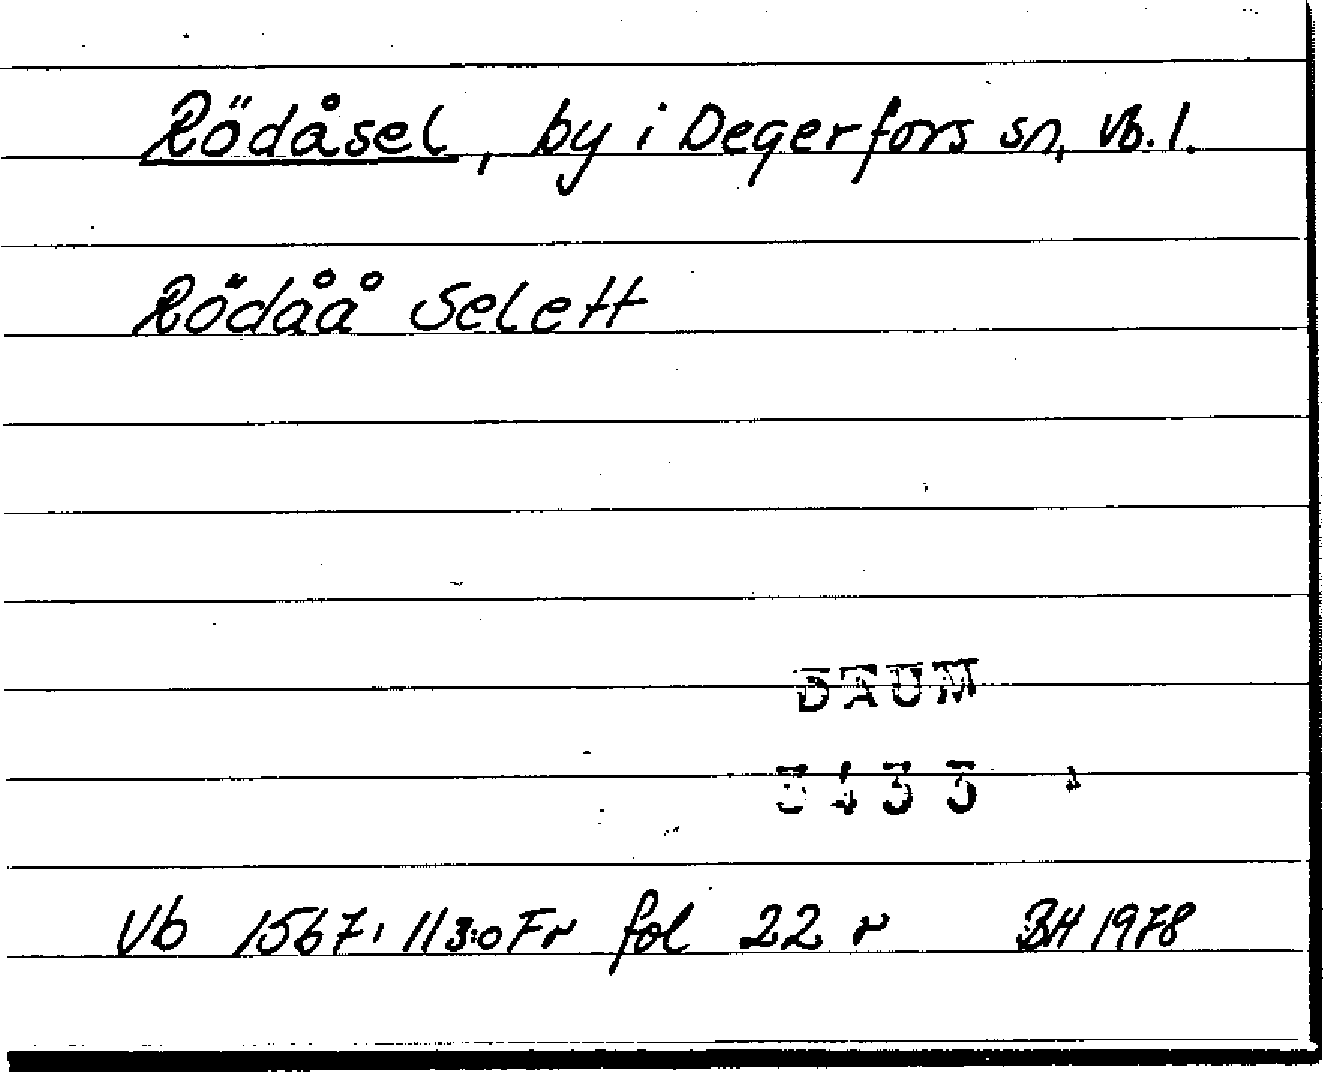 Rödåsel, by i Degerfors sn, Vb. l.
Rödåå Selett
DAUM
3433
Vb 1567: 113:0 Fr fol 22 r BH 1978